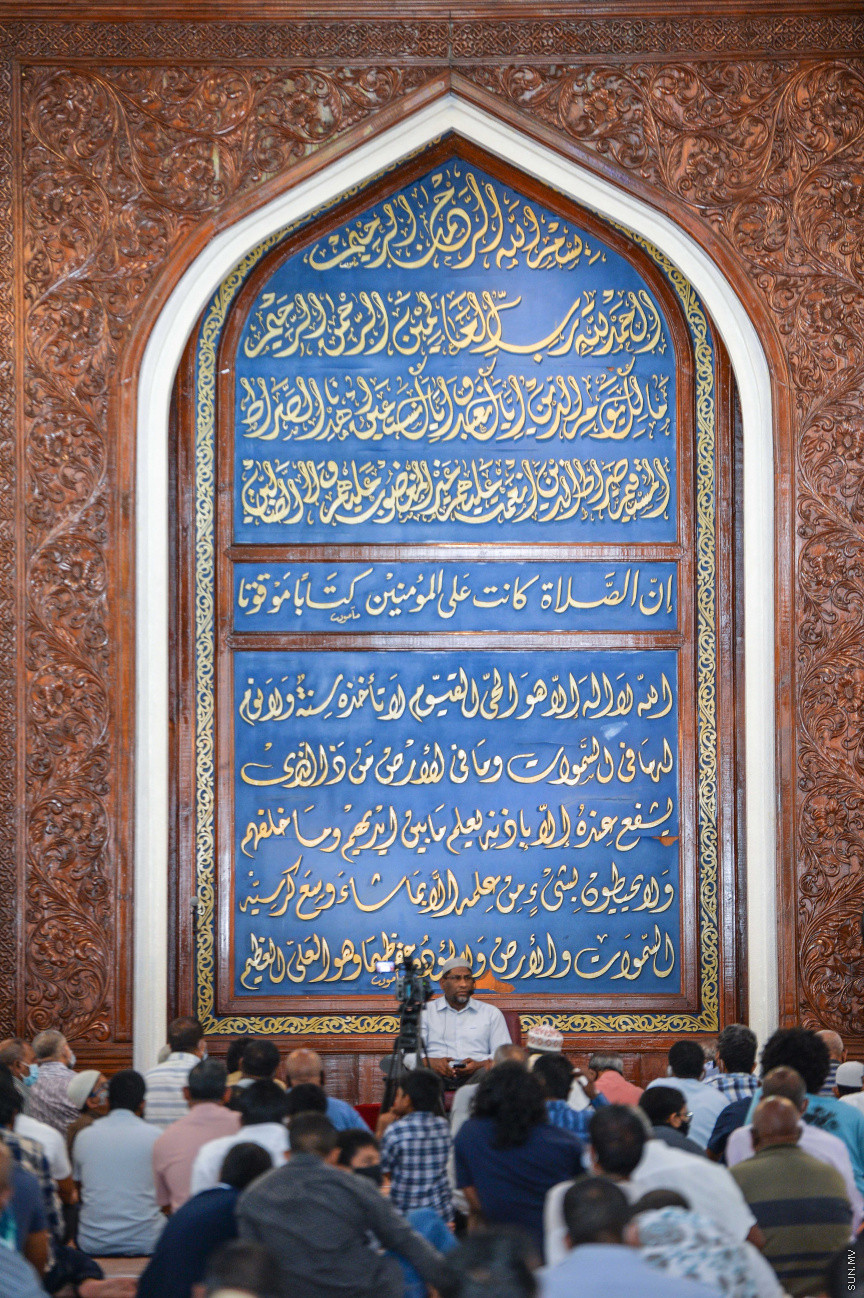 بسم الله الرحمن الرحيم
الحمد لله رب العالمين الرحمن الرحيم
مالك يوم الدين إياك نعبد وإياك نستعين اهدنا الصراط
المستقيم صراط الذين أنعمت عليهم غير المغضوب عليهم ولا الضالين
إنّ الصَّلاة كانت على المؤمنين كتابًا مَوقوتا
اللّه لا اله إلاّ هو الحيّ القيّوم لا تأخذه سِنةٌ ولا نوم
له ما فى السَّموات وما فى الأرض مَن ذَا الَّذى
يشفع عنده إلاّ باذنه يعلم مَا بين ايديهم وما خلفهم
وَلا يحيطون بشىءٍ مِن علمه الاَّ بما شاءَ وسِعَ كرسيّه
السَّموَات والأرض وَلا يؤدُه حفظهما وهو العلىّ العظيم
SUN.MV